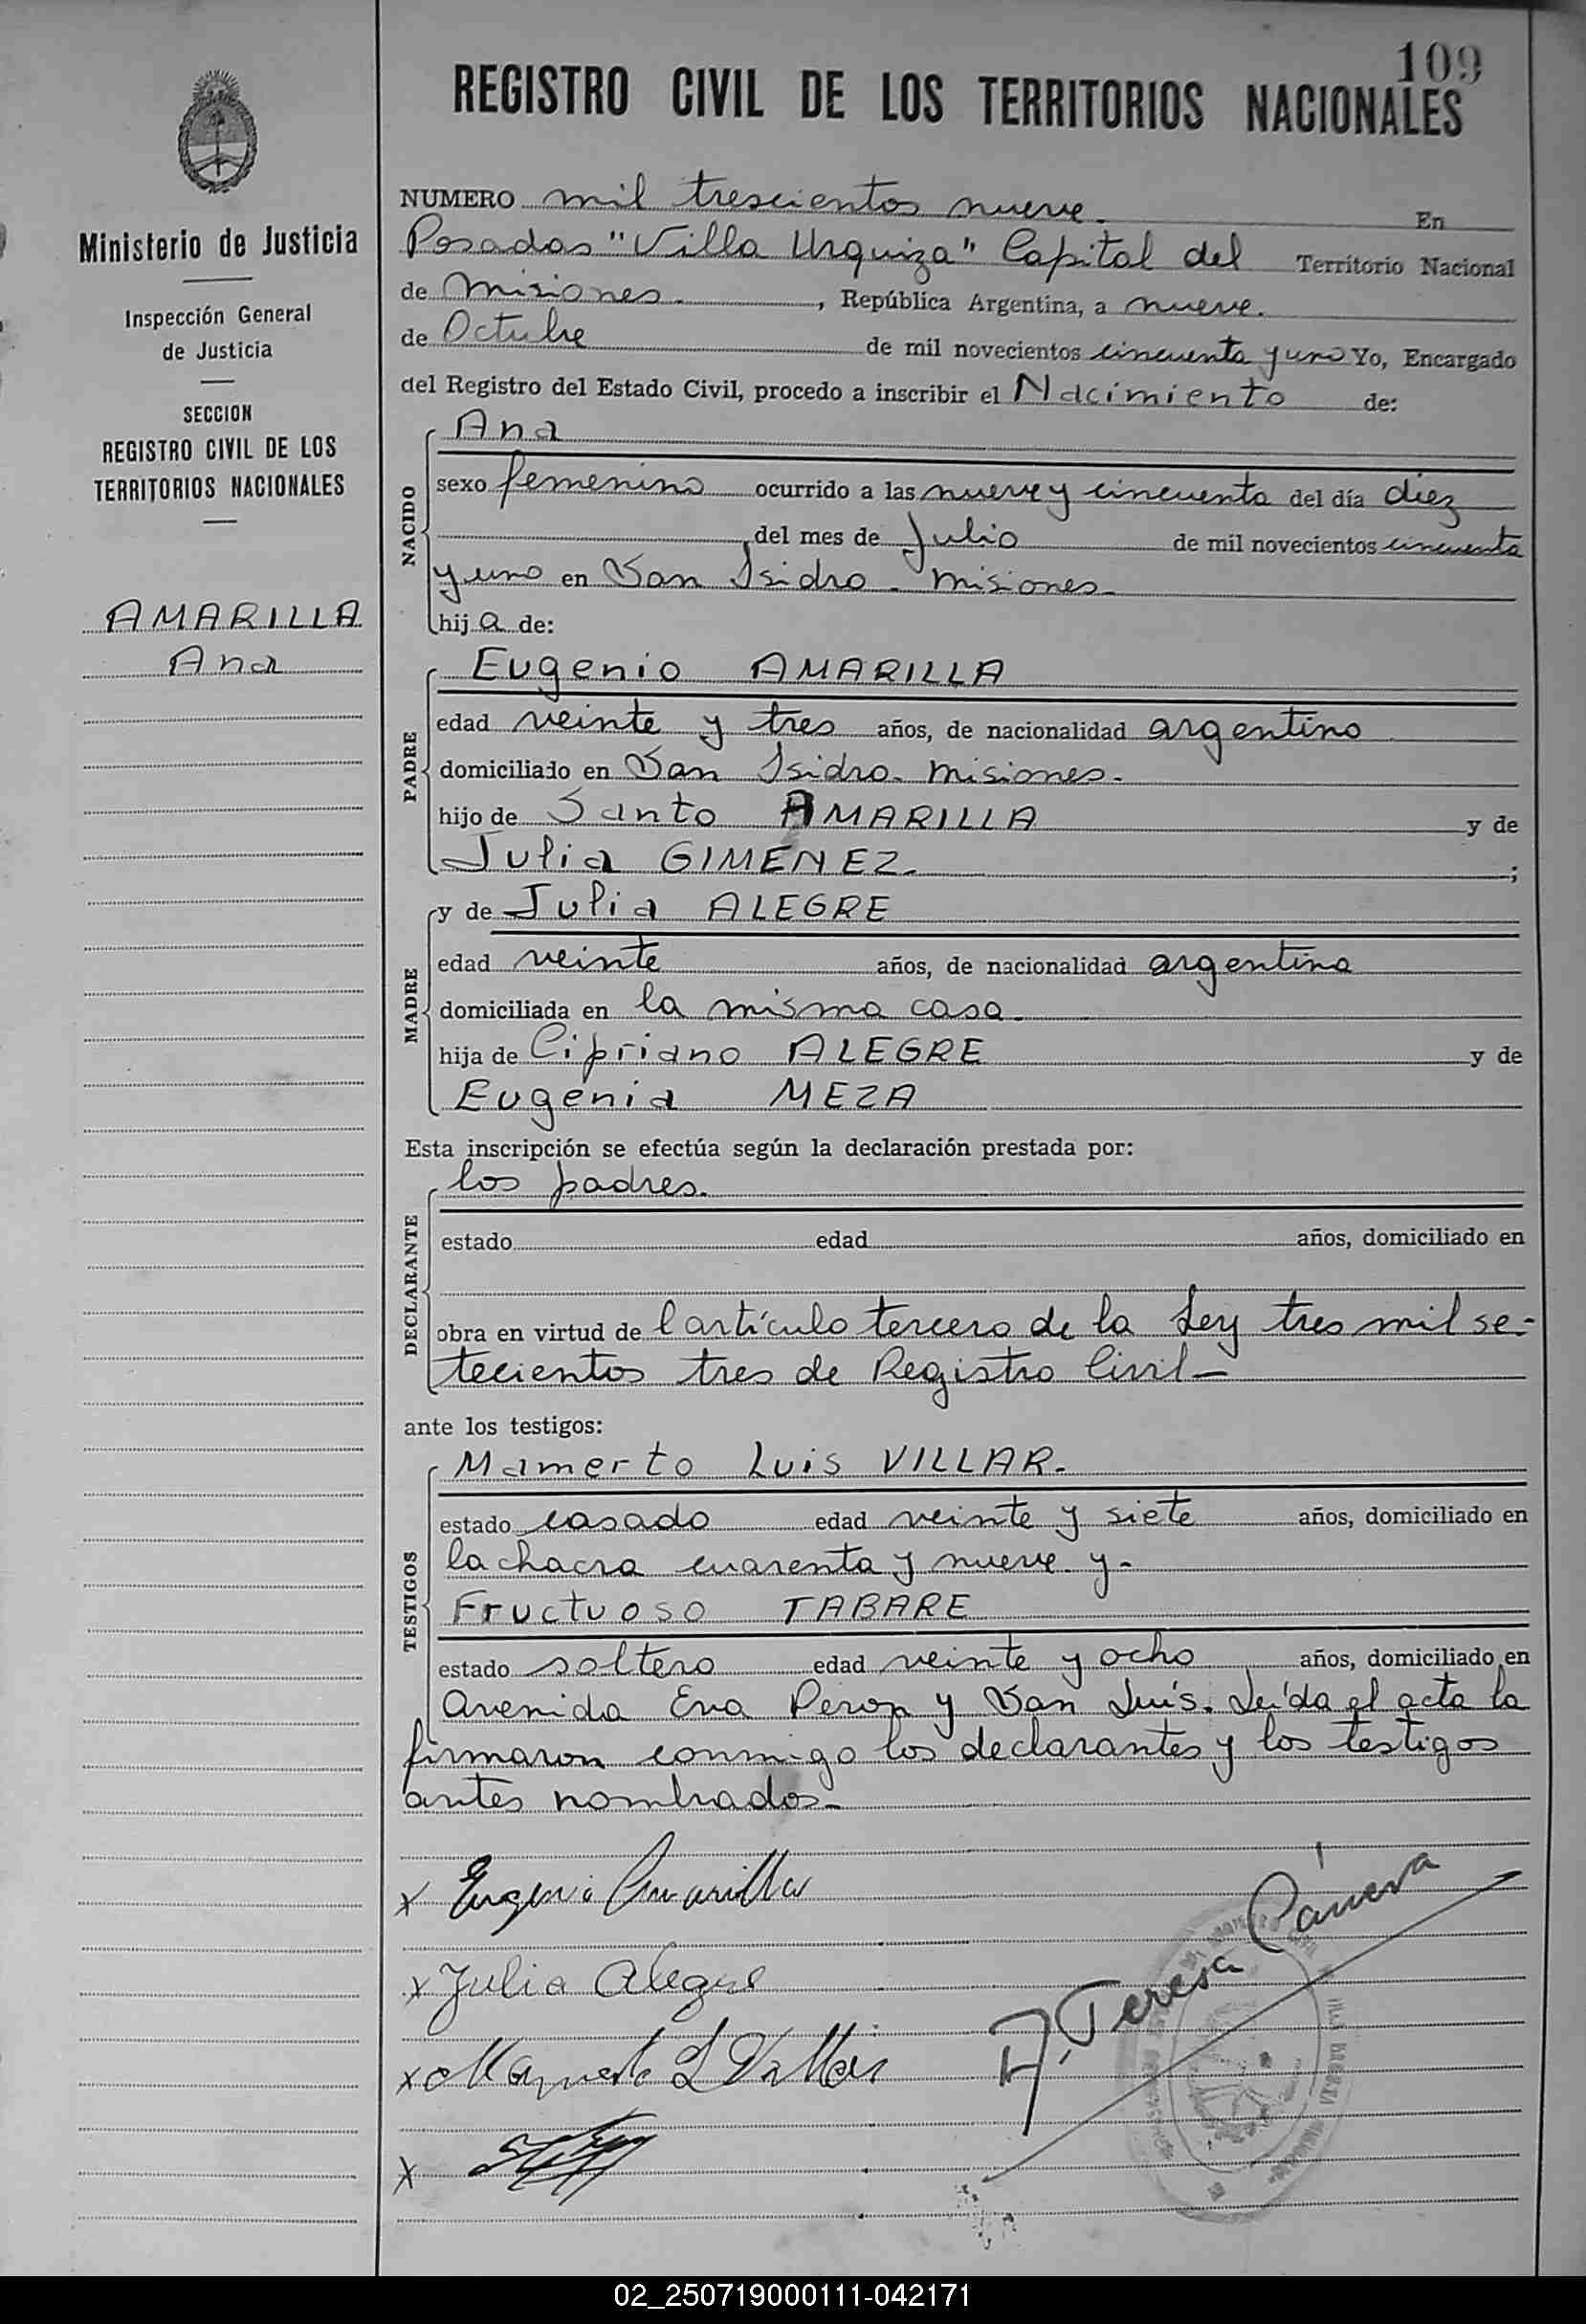 109
REGISTRO CIVIL DE LOS TERRITORIOS NACIONALES
Ministerio de Justicia
Inspección General
de Justicia
SECCION
REGISTRO CIVIL DE LOS
TERRITORIOS NACIONALES
AMARILLA
Ana
NUMERO mil trescientos nueve. En
Posadas "Villa Urquiza" Capital del Territorio Nacional
de Misiones. , República Argentina, a nueve.
de Octubre de mil novecientos cincuenta y uno Yo, Encargado
del Registro del Estado Civil, procedo a inscribir el Nacimiento de:
NACIDO
Ana
sexo femenino ocurrido a las nueve y cincuenta del día diez
del mes de Julio de mil novecientos cincuenta
y uno en San Isidro - Misiones-
hij a de:
PADRE
Eugenio AMARILLA
edad veinte y tres años, de nacionalidad argentino
domiciliado en San Isidro- Misiones-
hijo de Santo AMARILLA y de
Julia GIMENEZ. ;
MADRE
y de Julia ALEGRE
edad veinte años, de nacionalidad argentina
domiciliada en la misma casa.
hija de Cipriano ALEGRE y de
Eugenia MEZA
Esta inscripción se efectúa según la declaración prestada por:
DECLARANTE
los padres.
estado edad años, domiciliado en
obra en virtud de l artículo tercero de la Ley tres mil se-
tecientos tres de Registro Civil-
ante los testigos:
TESTIGOS
Mamerto Luis VILLAR-
estado casado edad veinte y siete años, domiciliado en
la chacra cuarenta y nueve y-
Fructuoso TABARE
estado soltero edad veinte y ocho años, domiciliado en
Avenida Eva Peron y San Luis. Leída el acta la
firmaron conmigo los declarantes y los testigos
antes nombrados-
x Eugenio Amarilla
x Julia Alegre
x Mamerto L Villar
A. Teresa
x
02_250719000111-042171